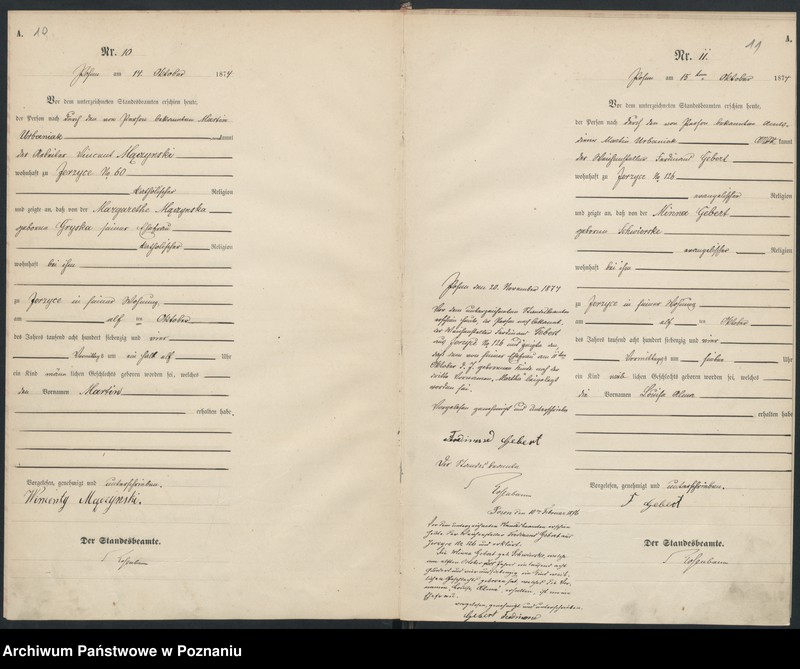 A. 10
Nr. 10
Posen am 14. Oktober 1874
Vor dem unterzeichneten Standesbeamten erschien heute,
der Person nach durch den von Person bekannten Martin
Urbaniak kannt
der Arbeiter Vincent Mączynski
wohnhaft zu Jerzyce No 60
katholischer Religion
und zeigte an, daß von der Margarethe Mączynska
geborene Gryska seiner Ehefrau
katholischer Religion
wohnhaft bei ihm
zu Jerzyce in seiner Wohnung
am elf ten Oktober
des Jahres tausend acht hundert siebenzig und vier
Vormittags um ein halb elf Uhr
ein Kind männlichen Geschlechts geboren worden sei, welches
den Vornamen Martin
erhalten habe.
Vorgelesen, genehmigt und unterschrieben.
Wincenty Mączynski.
Der Standesbeamte.
11 A.
Nr. 11.
Posen am 15ten Oktober 1874
Vor dem unterzeichneten Standesbeamten erschien heute,
der Person nach durch den von Person bekannten
Martin Urbaniak kannt
der Ferdinand Gebert
wohnhaft zu Jerzyce No 126
evangelischer Religion
und zeigte an, daß von der Minna Gebert
geborene Schwierske
evangelischer Religion
wohnhaft bei ihm
zu Jerzyce in seiner Wohnung
am elf ten Oktober
des Jahres tausend acht hundert siebenzig und vier
Vormittags um sieben Uhr
ein Kind weiblichen Geschlechts geboren worden sei, welches
die Vornamen Louise Alma
erhalten habe.
Vorgelesen, genehmigt und unterschrieben.
F Gebert
Der Standesbeamte.
Posen den 20. November 1874
Vor dem unterzeichneten Standesbeamten
erschien heute, der Person nach bekannt,
der Ferdinand Gebert
aus Jerzyce No 126 und zeigte an,
daß dem von seiner Ehefrau am 11ten
Oktober d. J. geborenen Kinde auch der
dritte Vorname, Martha beigelegt
worden sei.
Vorgelesen genehmigt und unterschrieben
Ferdinand Gebert
Der Standesbeamte
Posen den 10ten Februar 1876
Vor dem unterzeichneten Standesbeamten erschien
heute der Ferdinand Gebert aus
Jerzyce No 126 und erklärt:
Die Minna Gebert geb. Schwierske, welche
am elften Oktober tausend acht
hundert und vier und siebenzig ein Kind weib-
lichen Geschlechts geboren hat, welches die Vor-
namen "Louise Alma" erhalten, ist meine
Ehefrau.
vorgelesen, genehmigt und unterschrieben.
Gebert Ferdinand
Archiwum Państwowe w Poznaniu